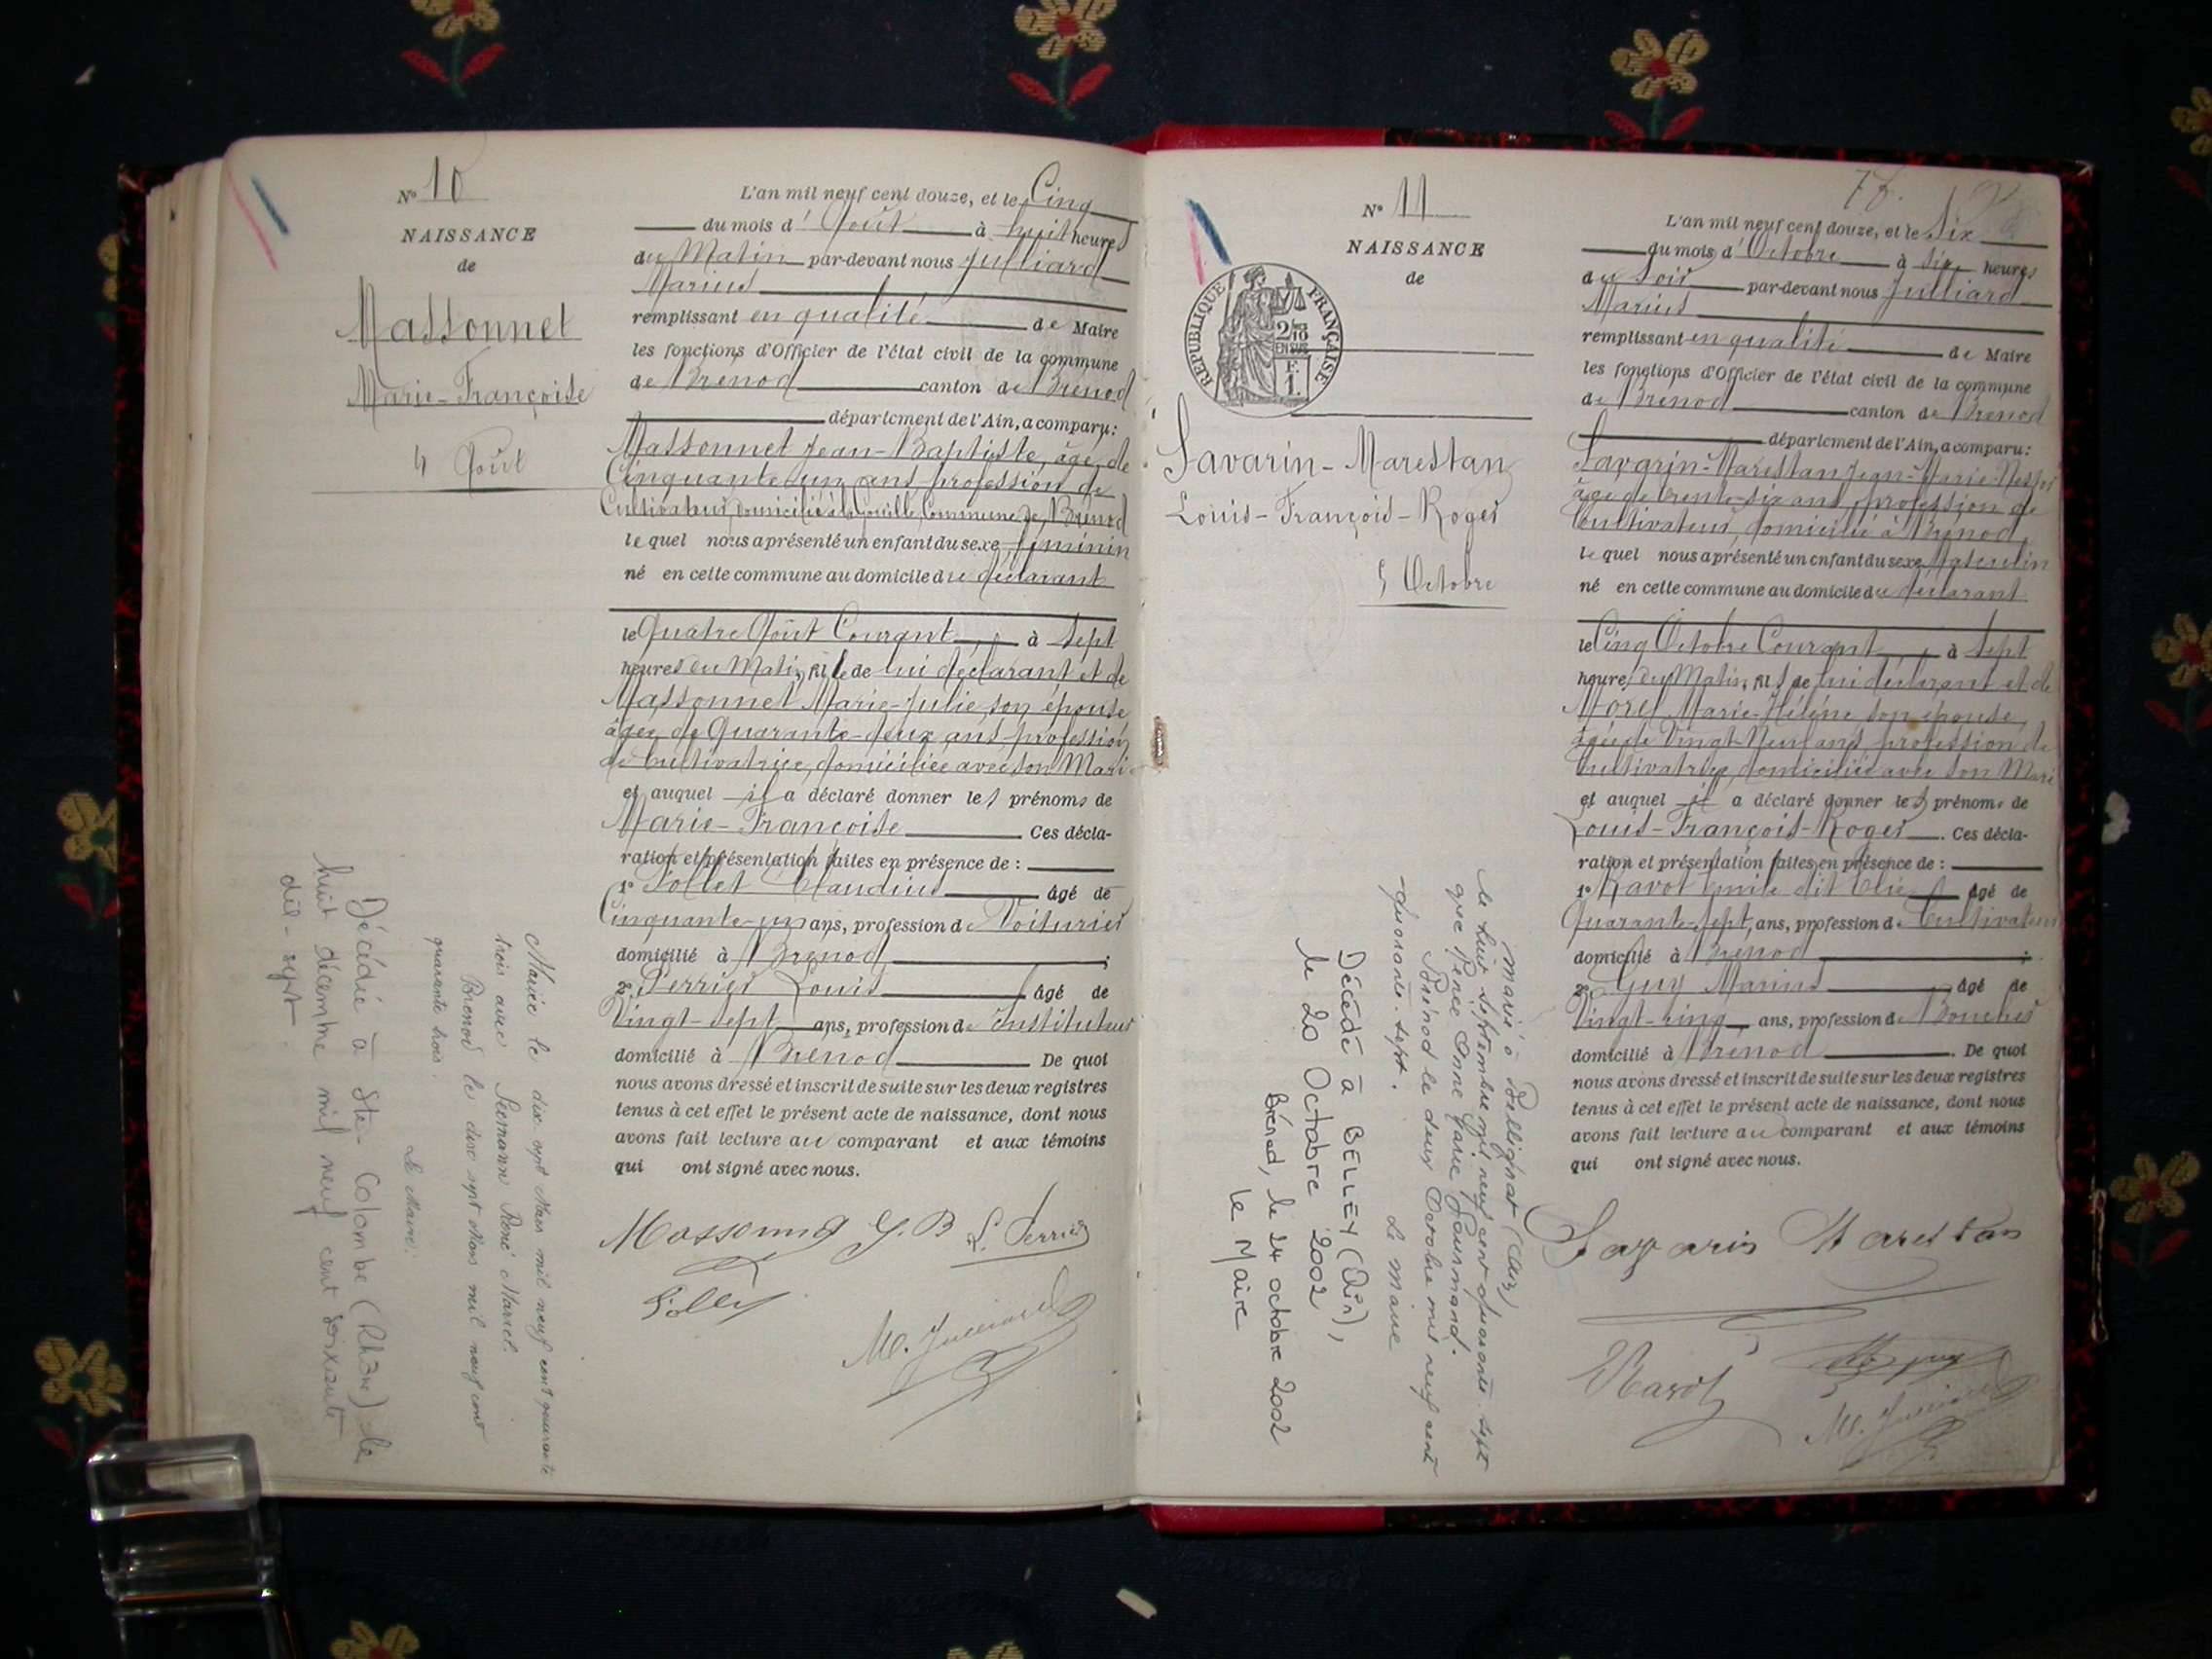 N° 10
NAISSANCE
de
Massonnet
Marie-Françoise
4 Août
L'an mil neuf cent douze, et le Cinq
du mois d' Août à huit heures
du Matin par-devant nous Julliard
Marius
remplissant en qualité de Maire
les fonctions d'Officier de l'état civil de la commune
de Brenod canton de Brenod
département de l'Ain, a comparu:
Massonnet Jean-Baptiste, âgé de
Cinquante-un ans profession de
Cultivateur, domicilié à la Commune de Brenod
lequel nous a présenté un enfant du sexe féminin
né en cette commune au domicile du déclarant
le Quatre Août Courant à Sept
heures du Matin, fille de lui déclarant et de
Massonnet Marie-Julie, son épouse,
âgée de Quarante-deux ans, profession
de Cultivatrice, domiciliée avec son Mari
et auquel il a déclaré donner les prénoms de
Marie-Françoise Ces décla-
ration et présentation faites en présence de :
1° Claudius âgé de
Cinquante-un ans, profession de Voiturier
domicilié à Brenod ;
2° Perrier Louis âgé de
Vingt-sept ans, profession de Instituteur
domicilié à Brenod De quoi
nous avons dressé et inscrit de suite sur les deux registres
tenus à cet effet le présent acte de naissance, dont nous
avons fait lecture au comparant et aux témoins
qui ont signé avec nous.
Massonnet J. B L. Perrier
M. Julliard
Mariée le dix sept Mars mil neuf cent quarante
trois avec Seemann René Marcel.
Brenod le dix sept Mars mil neuf cent
quarante trois.
Le Maire:
Décédée à Ste-Colombe (Rhône) le
huit décembre mil neuf cent soixante
dix-sept.
N° 11
NAISSANCE
de
RÉPUBLIQUE FRANÇAISE
2/10
EN SUS
F.
1.
Savarin-Marestan
Louis-François-Roger
5 Octobre
L'an mil neuf cent douze, et le Six
du mois d' Octobre à six heures
du Soir par-devant nous Julliard
Marius
remplissant en qualité de Maire
les fonctions d'Officier de l'état civil de la commune
de Brenod canton de Brenod
département de l'Ain, a comparu:
Savarin-Marestan Jean-Marie-Nestor
âgé de trente-six ans, profession de
Cultivateur, domicilié à Brénod,
lequel nous a présenté un enfant du sexe Masculin
né en cette commune au domicile du déclarant
le Cinq Octobre Courant à Sept
heures du Matin, fils de lui déclarant et de
Morel Marie-Hélène son épouse,
âgée de Vingt-Neuf ans, profession de
Cultivatrice, domiciliée avec son Mari
et auquel il a déclaré donner les prénoms de
Louis-François-Roger. Ces décla-
ration et présentation faites en présence de :
1° Ravot Emile dit Elie âgé de
Quarante-sept, ans, profession de Cultivateur
domicilié à Brénod ;
2° Guy Marius âgé de
Vingt-cinq ans, profession de Boucher
domicilié à Brénod. De quoi
nous avons dressé et inscrit de suite sur les deux registres
tenus à cet effet le présent acte de naissance, dont nous
avons fait lecture au comparant et aux témoins
qui ont signé avec nous.
Savarin Marestan
Ravot
M. Julliard
Marié à Bellignat (Ain)
le huit septembre mil neuf cent quarante-sept
avec Renée Anne Marie Gourmand.
Brénod le deux Octobre mil neuf cent
-quarante-sept.
Le Maire
Décédé à BELLEY (Ain),
le 20 Octobre 2002
Brénod, le 24 octobre 2002
Le Maire